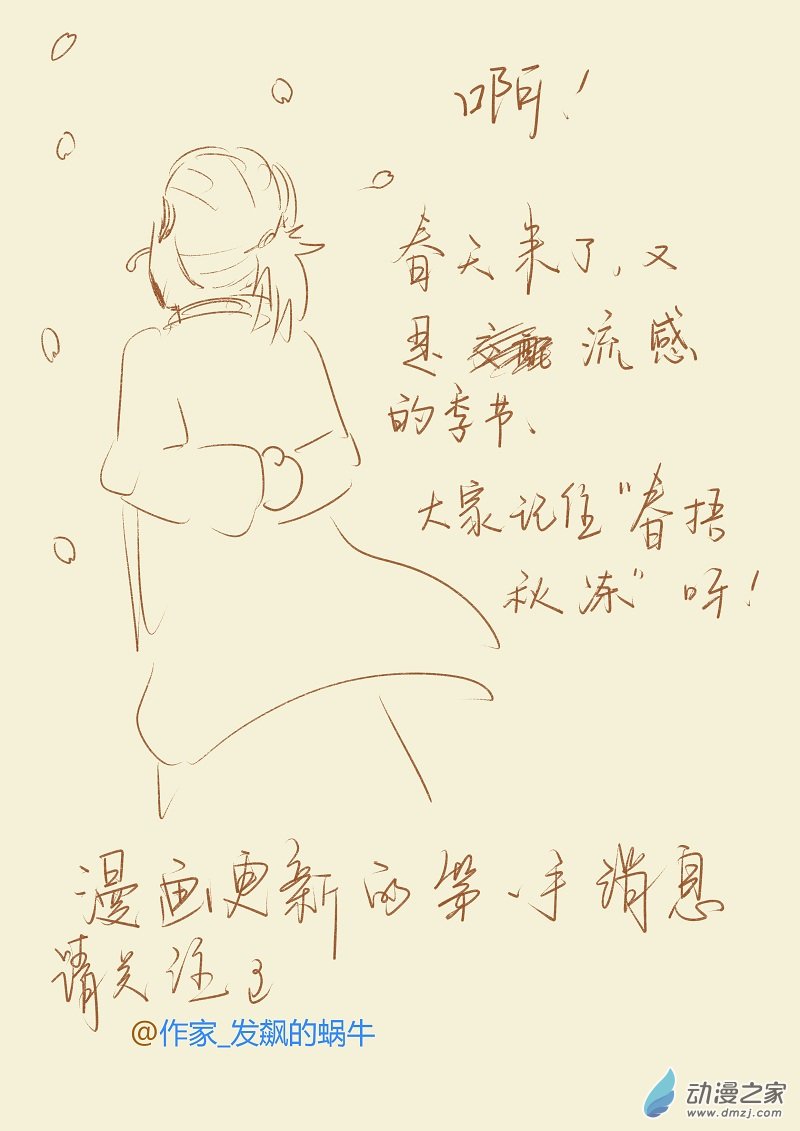 啊！
春天来了，又
是交配流感
的季节、
大家记住"春捂
秋冻"呀！
漫画更新的第一手消息
请关注
@作家_发飙的蜗牛
动漫之家
www.dmzj.com